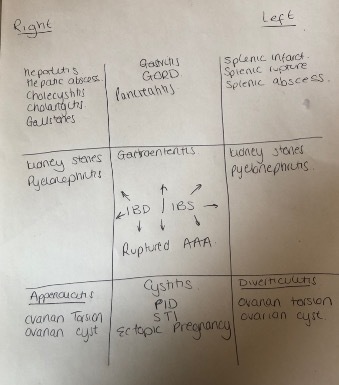 Right
Left
Hepatitis
Hepatic abscess.
Cholecystitis
Cholangitis
Gallstones
Gastritis
GORD
Pancreatitis
Splenic infarct.
Splenic rupture
Splenic abscess.
Kidney stones
Pyelonephritis
Gastroenteritis
IBD
IBS
Ruptured AAA
Kidney stones
Pyelonephritis.
Appendicitis
Ovarian Torsion
ovarian cyst
Cystitis
PID
STI
Ectopic Pregnancy
Diverticulitis
Ovarian torsion
ovarian cyst.